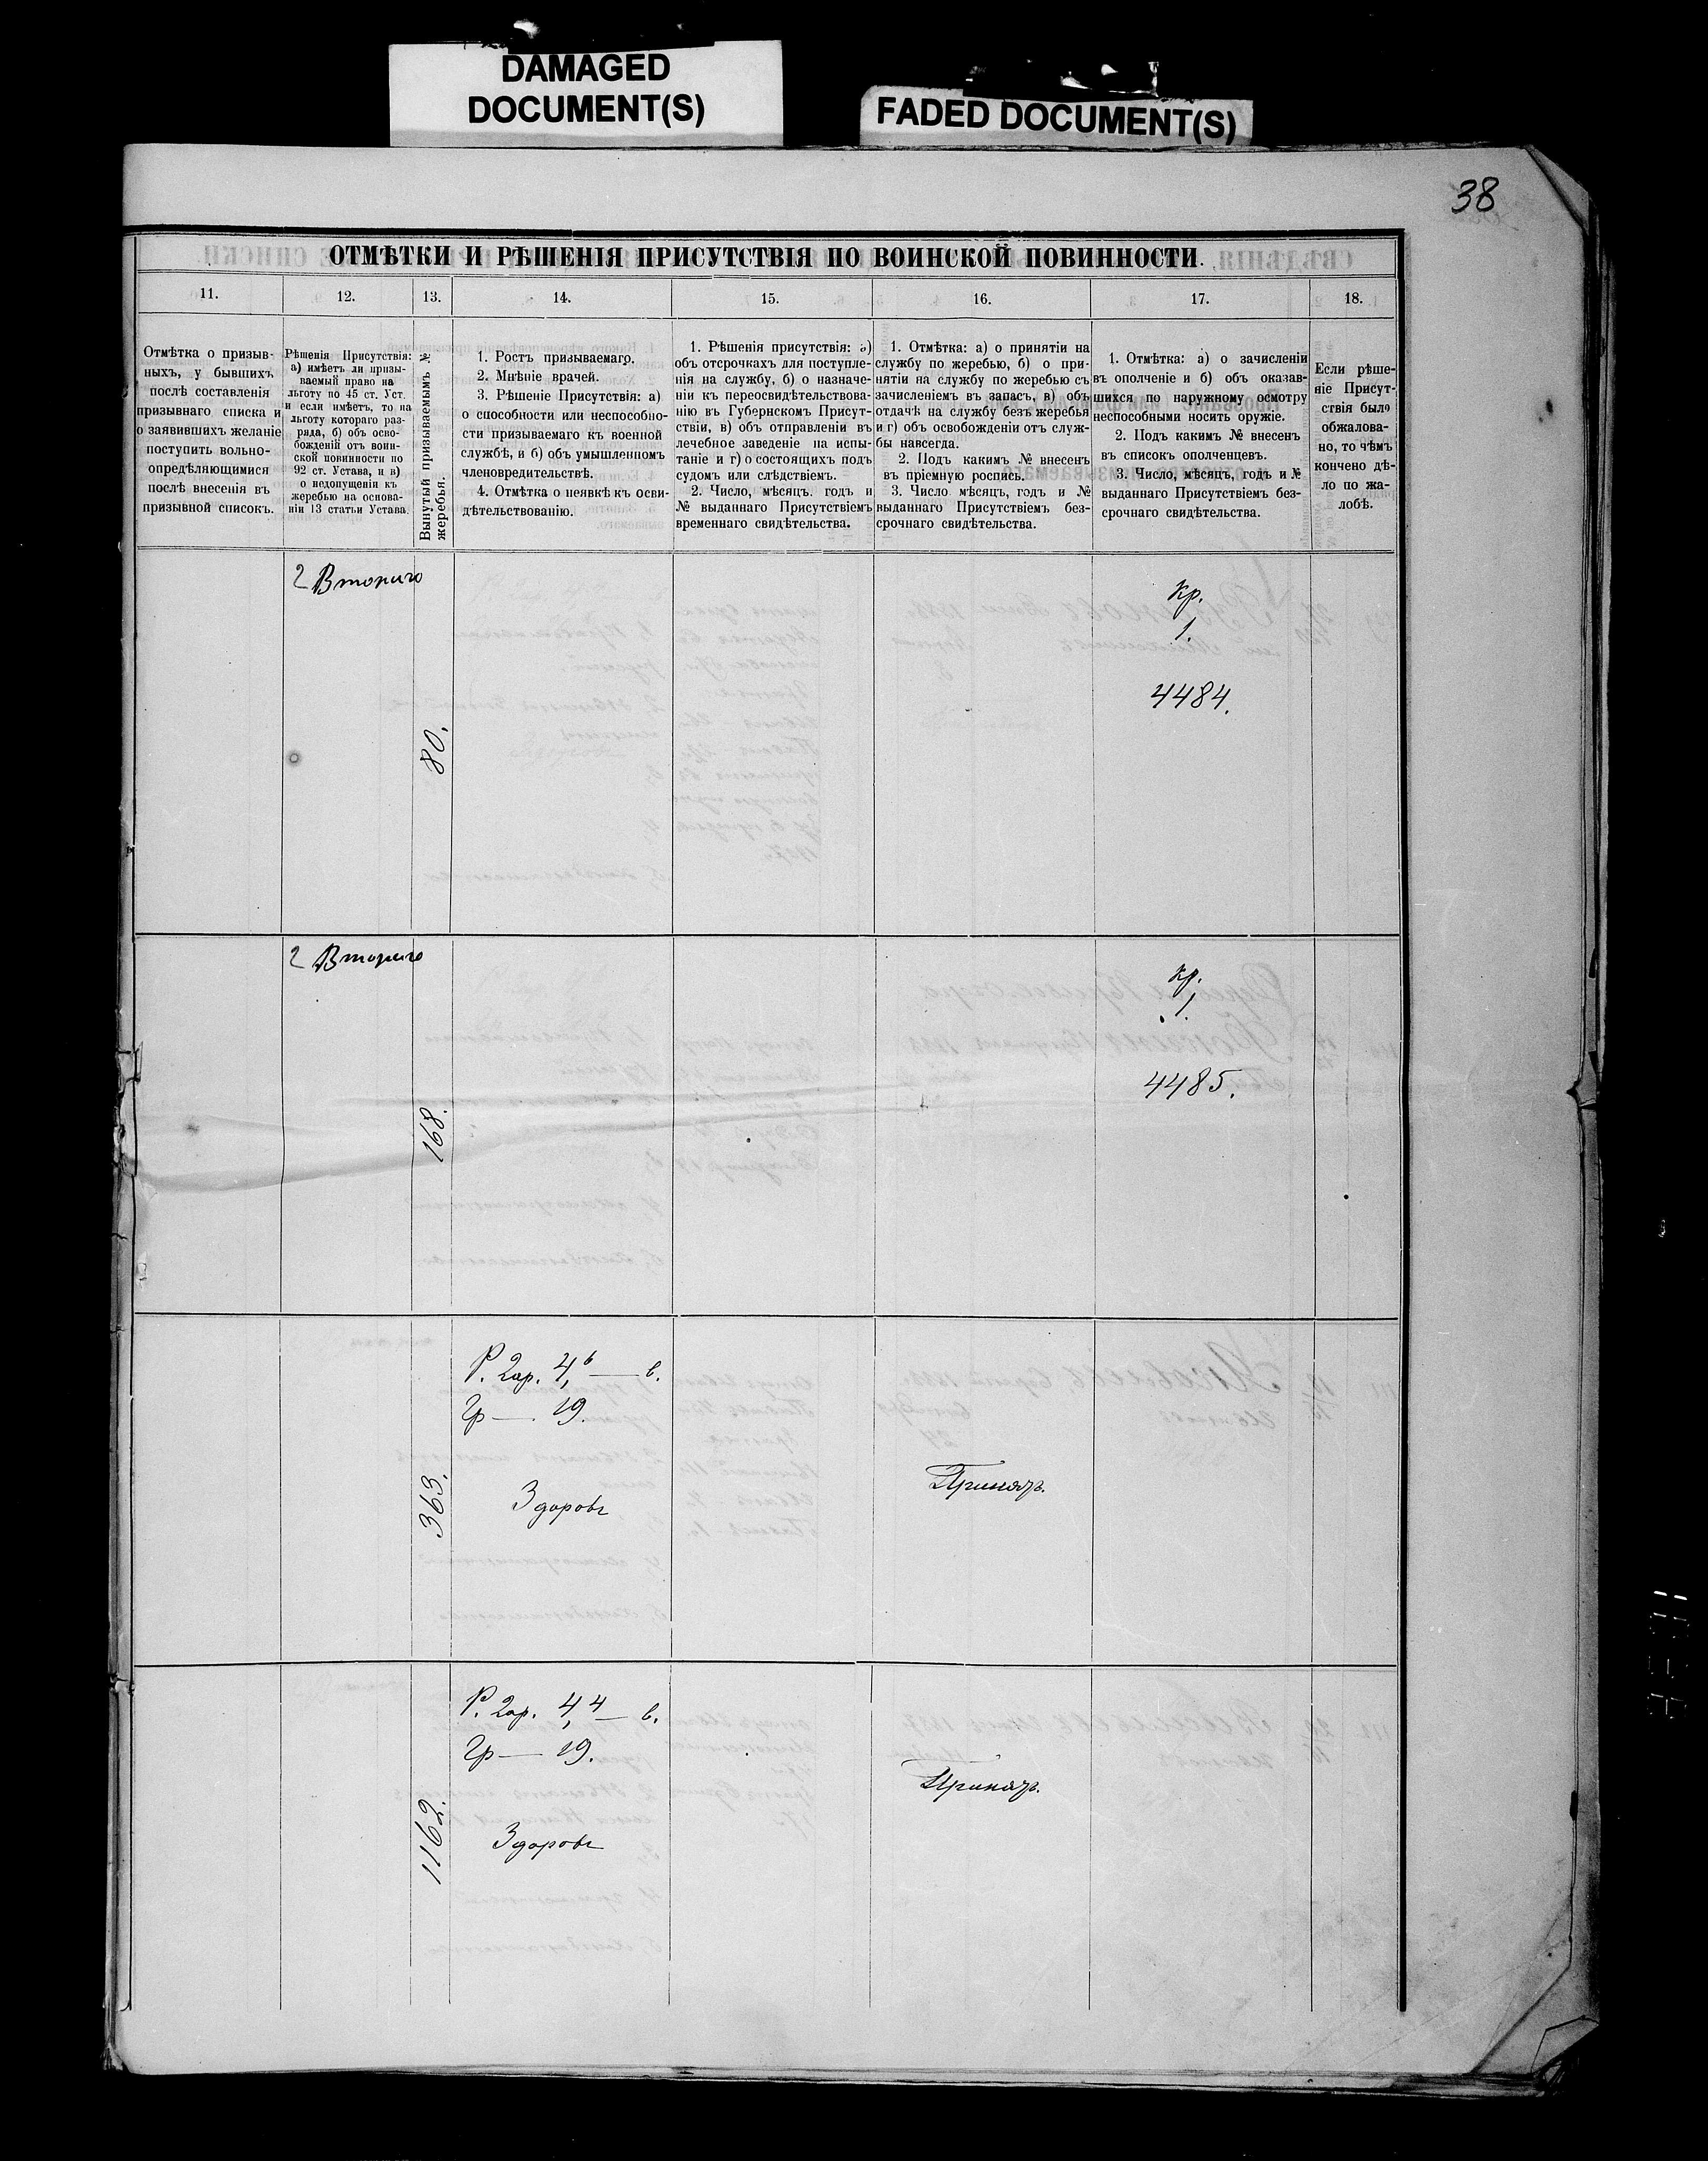 DAMAGED
DOCUMENT(S)
FADED DOCUMENT(S)
38
ОТМѢТКИ И РѢШЕНІЯ ПРИСУТСТВІЯ ПО ВОИНСКОЙ ПОВИННОСТИ.
11.
12.
13.
14.
15.
16.
17.
18.
Отмѣтка о призыв-
ныхъ, у бывшихъ
послѣ составленія
призывнаго списка и
о заявившихъ желаніе
поступить вольно-
опредѣляющимися
послѣ внесенія въ
призывной списокъ.
Рѣшенія Присутствія:
а) имѣетъ ли призы-
ваемый право на
льготу по 45 ст. Уст.
и если имѣетъ, то на
льготу котораго раз-
ряда, б) объ осво-
божденіи отъ воин-
ской повинности по
92 ст. Устава, и в)
о недопущеніи къ
жеребью на основа-
ніи 13 статьи Устава.
Вынутый призываемымъ №
жеребья.
1. Ростъ призываемаго.
2. Мнѣніе врачей.
3. Рѣшеніе Присутствія: а)
о способности или неспособно-
сти призываемаго къ военной
службѣ, и б) объ умышленномъ
членовредительствѣ.
4. Отмѣтка о неявкѣ къ осви-
дѣтельствованію.
1. Рѣшенія присутствія: а)
объ отсрочкахъ для поступле-
нія на службу, б) о назначе-
ніи къ переосвидѣтельствова-
нію въ Губернскомъ Присут-
ствіи, в) объ отправленіи въ
лечебное заведеніе на испы-
таніе и г) о состоящихъ подъ
судомъ или слѣдствіемъ.
2. Число, мѣсяцъ. годъ и
№ выданнаго Присутствіемъ
временнаго свидѣтельства.
1. Отмѣтка: а) о принятіи на
службу по жеребью, б) о при-
нятіи на службу по жеребью съ
зачисленіемъ въ запасъ, в) объ
отдачѣ на службу безъ жеребья
и г) объ освобожденіи отъ служ-
бы навсегда.
2. Подъ какимъ № внесенъ
въ пріемную роспись.
3. Число мѣсяцъ, годъ и №
выданнаго Присутствіемъ без-
срочнаго свидѣтельства.
1. Отмѣтка: а) о зачисленіи
въ ополченіе и б) объ оказав-
шихся по наружному осмотру
неспособными носить оружіе.
2. Подъ какимъ № внесенъ
въ списокъ ополченцевъ.
3. Число, мѣсяцъ, годъ и №
выданнаго Присутствіемъ без-
срочнаго свидѣтельства.
Если рѣше-
ніе Присут-
ствія было
обжалова-
но, то чѣмъ
кончено дѣ-
ло по жа-
лобѣ.
2 Вторично
80.
Кр.
1.
4484.
2 Вторично
168.
Кр.
1.
4485.
363.
Р. 2ар. 4,6 — в.
Гр — 19.
Здоровъ
Принятъ.
1162.
Р. 2ар. 4,4 — в.
Гр — 19.
Здоровъ
Принятъ.